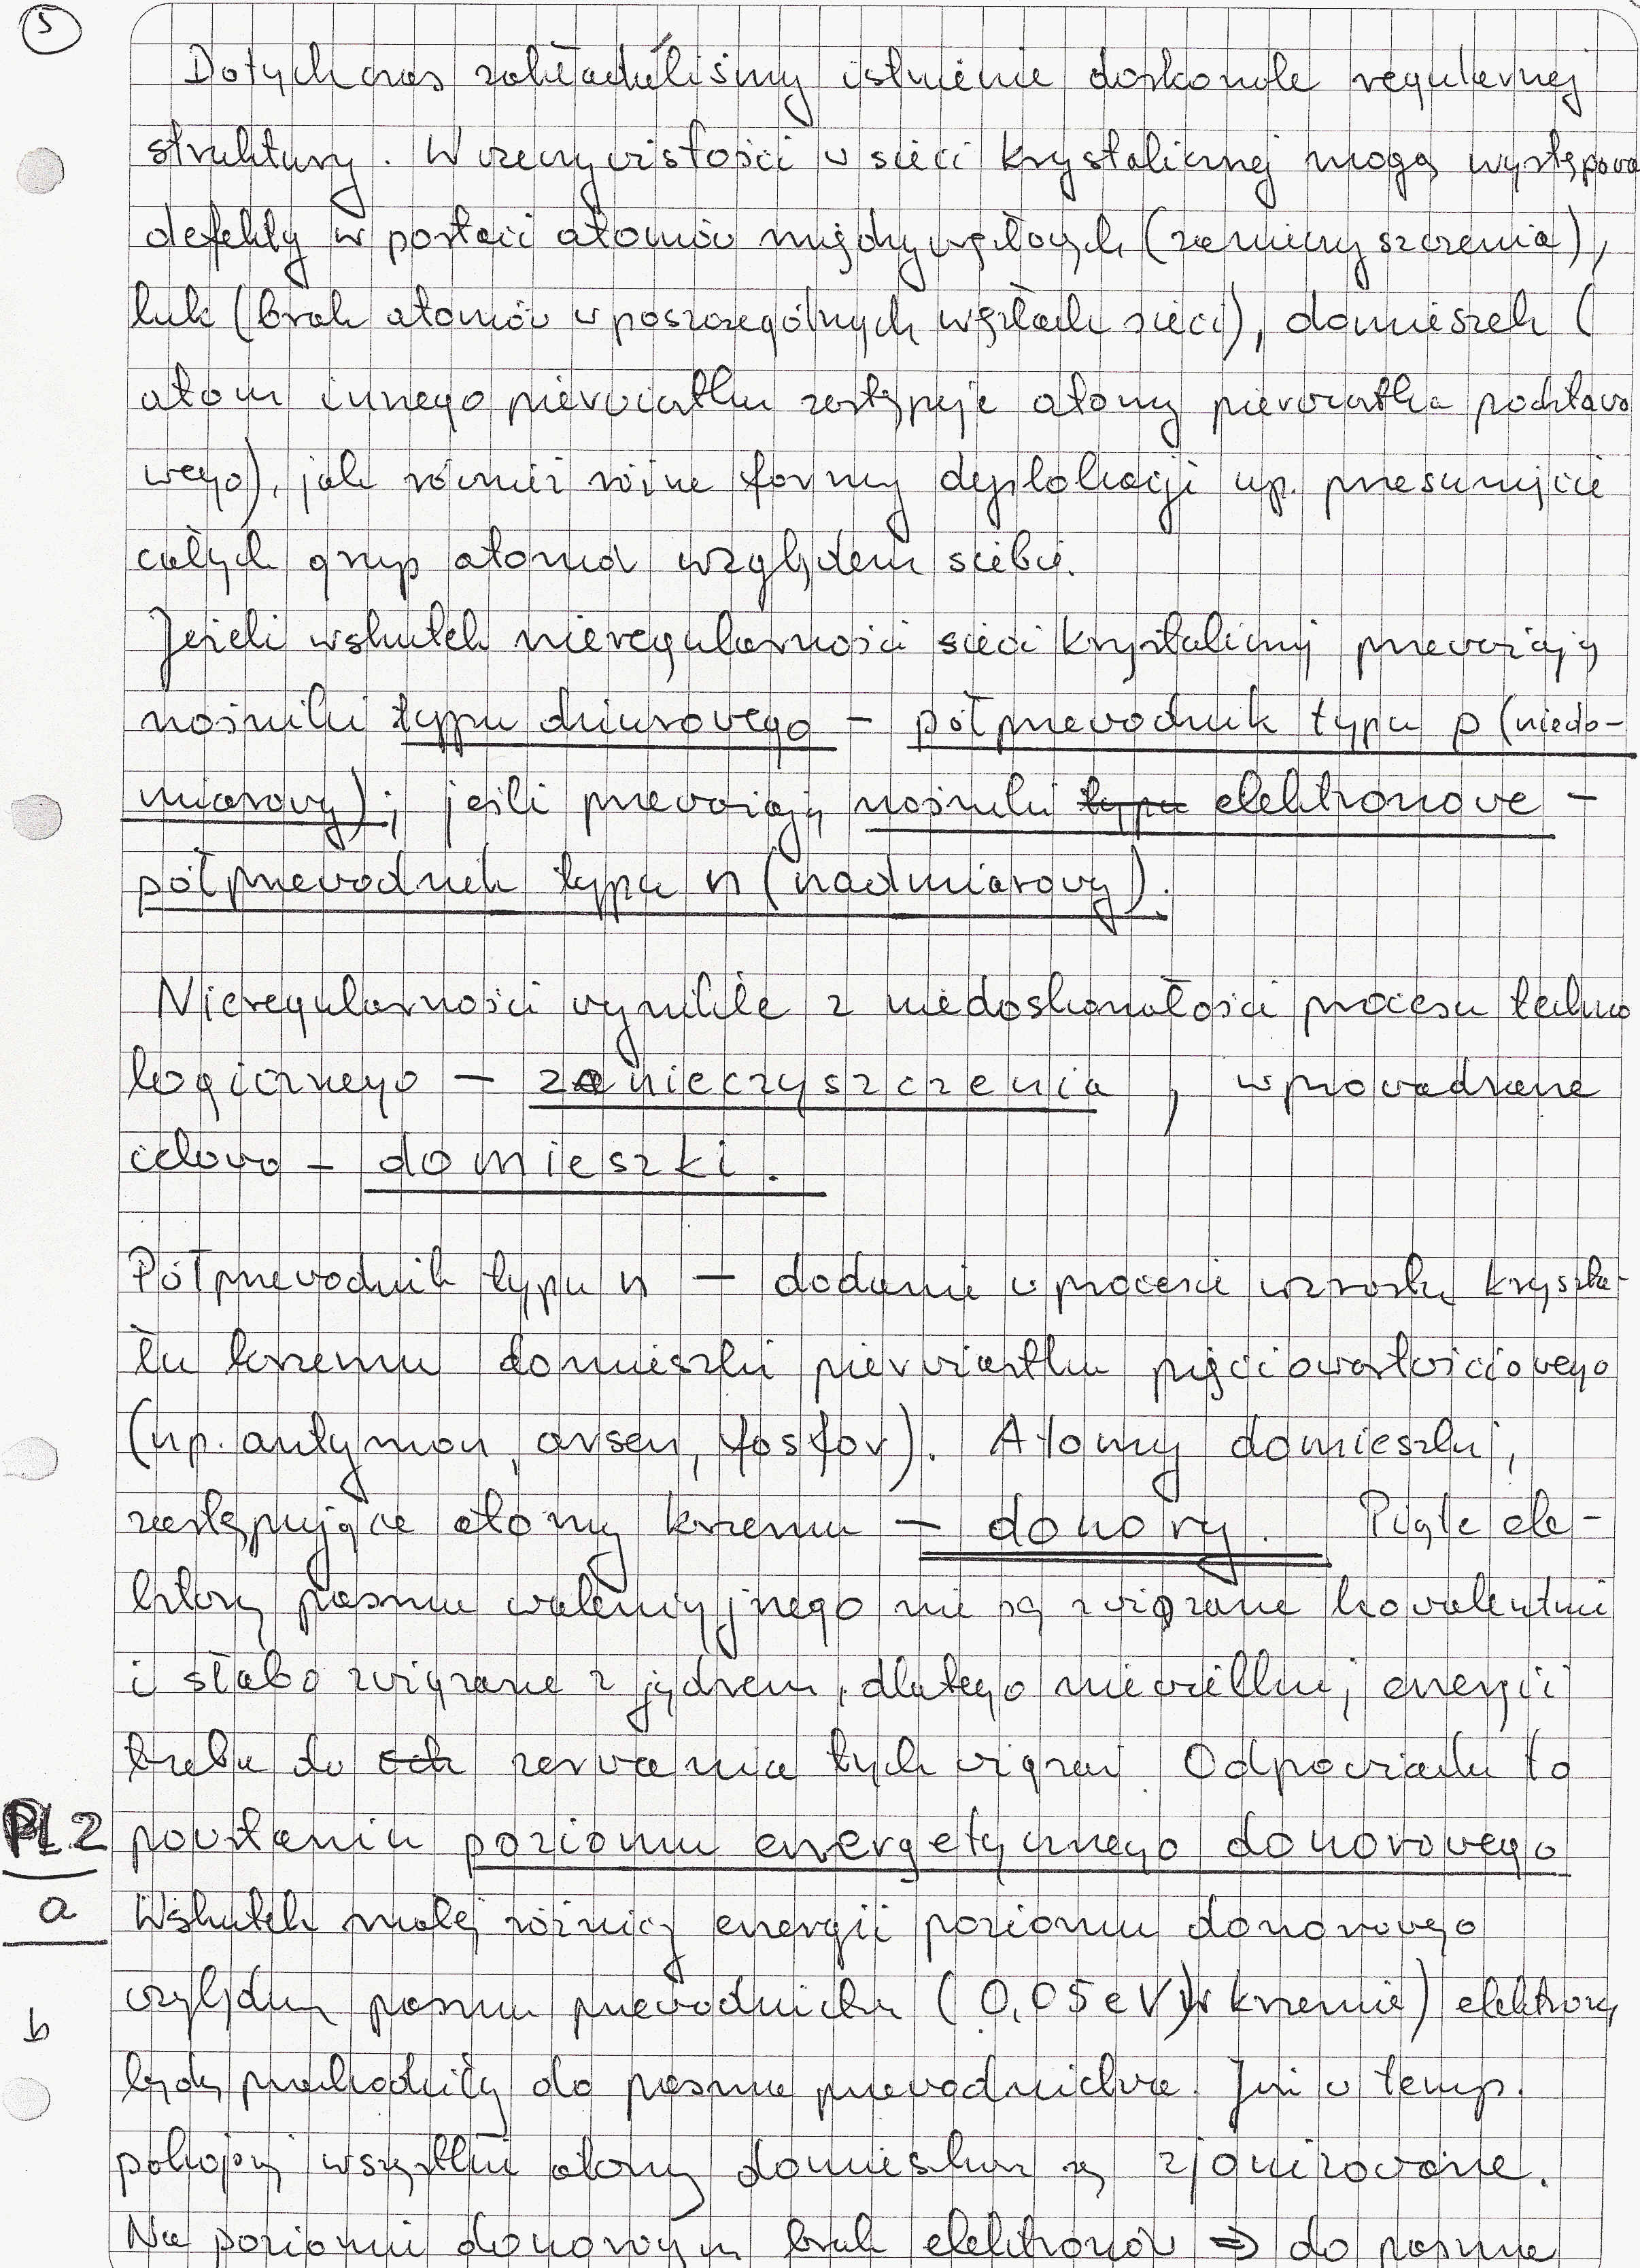 5
Dotychczas zakładaliśmy istnienie doskonale regularnej
struktury. W rzeczywistości w sieci krystalicznej mogą występowa
defekty w postaci atomów międzywęzłowych (zanieczyszczenia),
luk (brak atomów w poszczególnych węzłach sieci), domieszek (
atom innego pierwiastku zastępuje atomy pierwiastka podstawo
wego), jak również różne formy dyslokacji np. przesunięcie
całych grup atomów względem siebie.
Jeżeli wskutek nieregularności sieci krystalicznej przeważają
nośniki typu dziurowego – półprzewodnik typu p (niedo-
miarowy); jeśli przeważają nośniki typu elektronowe –
półprzewodnik typu n (nadmiarowy).
Nieregularności wynikłe z niedoskonałości procesu techno
logicznego – zanieczyszczenia, wprowadzane
celowo – domieszki.
Półprzewodnik typu n – dodanie w procesie wzrostu kryszta-
łu krzemu domieszki pierwiastku pięciowartościowego
(np. antymon, arsen, fosfor). Atomy domieszki,
zastępujące atomy krzemu – donory. Piąte ele-
ktrony pasma walencyjnego nie są związane kowalentnie
i słabo związane z jądrem, dlatego niewielkiej energii
trzeba do zerwania tych wiązań. Odpowiada to
PL.2 powstaniu poziomu energetycznego donorowego
a Wskutek małej różnicy energii poziomu donorowego
względem pasma przewodnictwa (0,05 eV w krzemie) elektrony
b
będą przechodziły do pasma przewodnictwa. Już w temp.
pokojowej wszystkie atomy domieszki są zjonizowane.
Na poziomie donorowym brak elektronów ⇒ do pasma